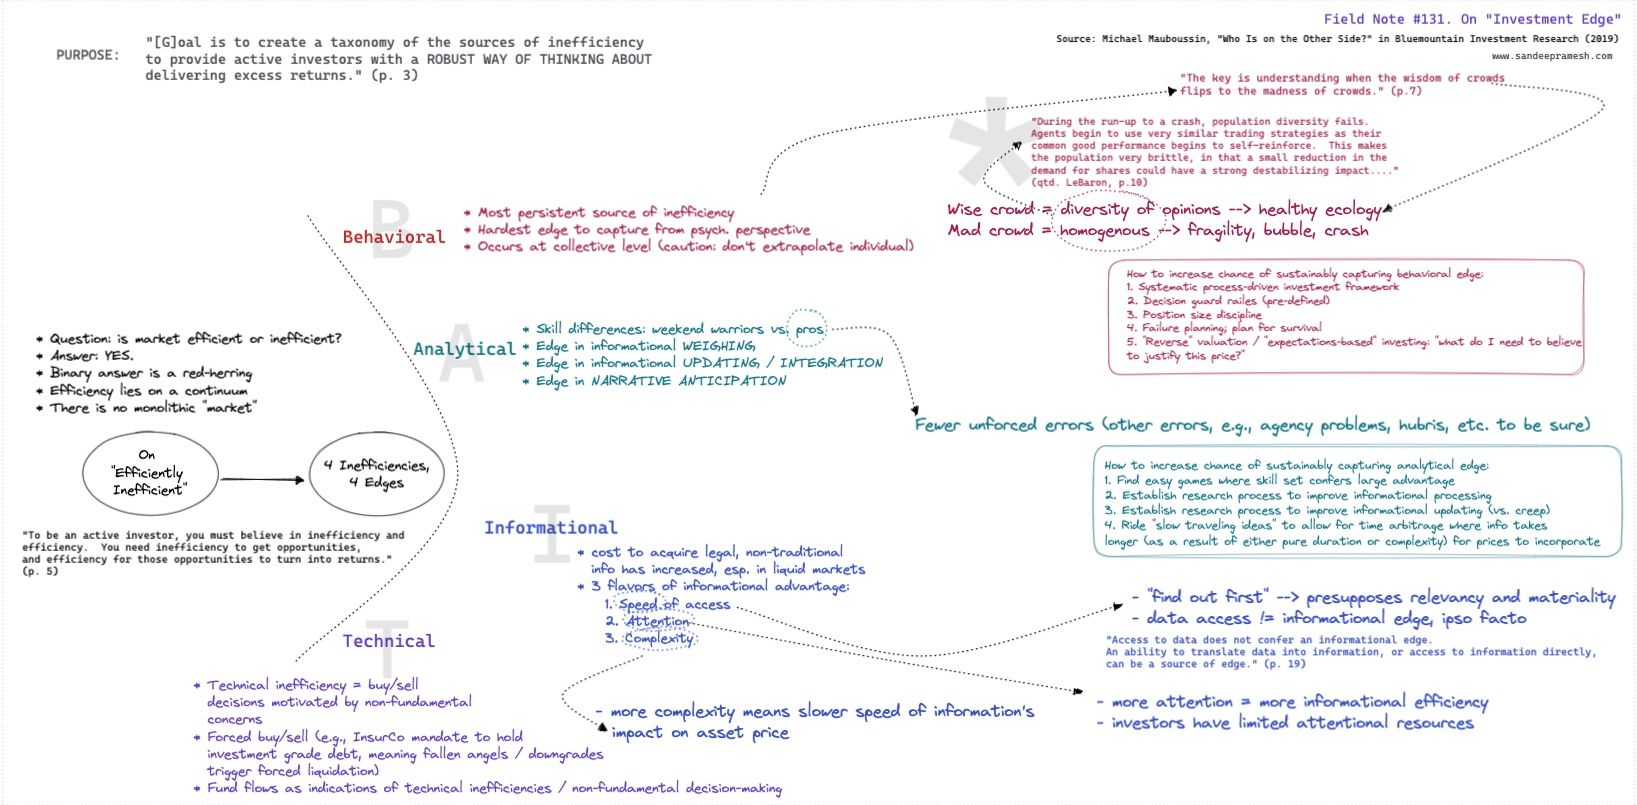 Field Note #131. On "Investment Edge"
Source: Michael Mauboussin, "Who Is on the Other Side?" in Bluemountain Investment Research (2019)
www.sandeepramesh.com
PURPOSE:
"[G]oal is to create a taxonomy of the sources of inefficiency
to provide active investors with a ROBUST WAY OF THINKING ABOUT
delivering excess returns." (p. 3)
"The key is understanding when the wisdom of crowds
flips to the madness of crowds." (p.7)
*
"During the run-up to a crash, population diversity fails.
Agents begin to use very similar trading strategies as their
common good performance begins to self-reinforce. This makes
the population very brittle, in that a small reduction in the
demand for shares could have a strong destabilizing impact...."
(qtd. LeBaron, p.10)
B
Behavioral
* Most persistent source of inefficiency
* Hardest edge to capture from psych. perspective
* Occurs at collective level (caution: don't extrapolate individual)
Wise crowd = diversity of opinions --> healthy ecology
Mad crowd = homogenous --> fragility, bubble, crash
How to increase chance of sustainably capturing behavioral edge:
1. Systematic process-driven investment framework
2. Decision guard railes (pre-defined)
3. Position size discipline
4. Failure planning; plan for survival
5. "Reverse" valuation / "expectations-based" investing: "what do I need to believe
to justify this price?"
A
Analytical
* Skill differences: weekend warriors vs. pros
* Edge in informational WEIGHING
* Edge in informational UPDATING / INTEGRATION
* Edge in NARRATIVE ANTICIPATION
Fewer unforced errors (other errors, e.g., agency problems, hubris, etc. to be sure)
How to increase chance of sustainably capturing analytical edge:
1. Find easy games where skill set confers large advantage
2. Establish research process to improve informational processing
3. Establish research process to improve informational updating (vs. creep)
4. Ride "slow traveling ideas" to allow for time arbitrage where info takes
longer (as a result of either pure duration or complexity) for prices to incorporate
* Question: is market efficient or inefficient?
* Answer: YES.
* Binary answer is a red-herring
* Efficiency lies on a continuum
* There is no monolithic "market"
On
"Efficiently
Inefficient"
4 Inefficiencies,
4 Edges
"To be an active investor, you must believe in inefficiency and
efficiency. You need inefficiency to get opportunities,
and efficiency for those opportunities to turn into returns."
(p. 5)
I
Informational
* cost to acquire legal, non-traditional
info has increased, esp. in liquid markets
* 3 flavors of informational advantage:
1. Speed of access
2. Attention
3. Complexity
- "find out first" --> presupposes relevancy and materiality
- data access != informational edge, ipso facto
"Access to data does not confer an informational edge.
An ability to translate data into information, or access to information directly,
can be a source of edge." (p. 19)
- more attention = more informational efficiency
- investors have limited attentional resources
- more complexity means slower speed of information's
impact on asset price
T
Technical
* Technical inefficiency = buy/sell
decisions motivated by non-fundamental
concerns
* Forced buy/sell (e.g., InsurCo mandate to hold
investment grade debt, meaning fallen angels / downgrades
trigger forced liquidation)
* Fund flows as indications of technical inefficiencies / non-fundamental decision-making